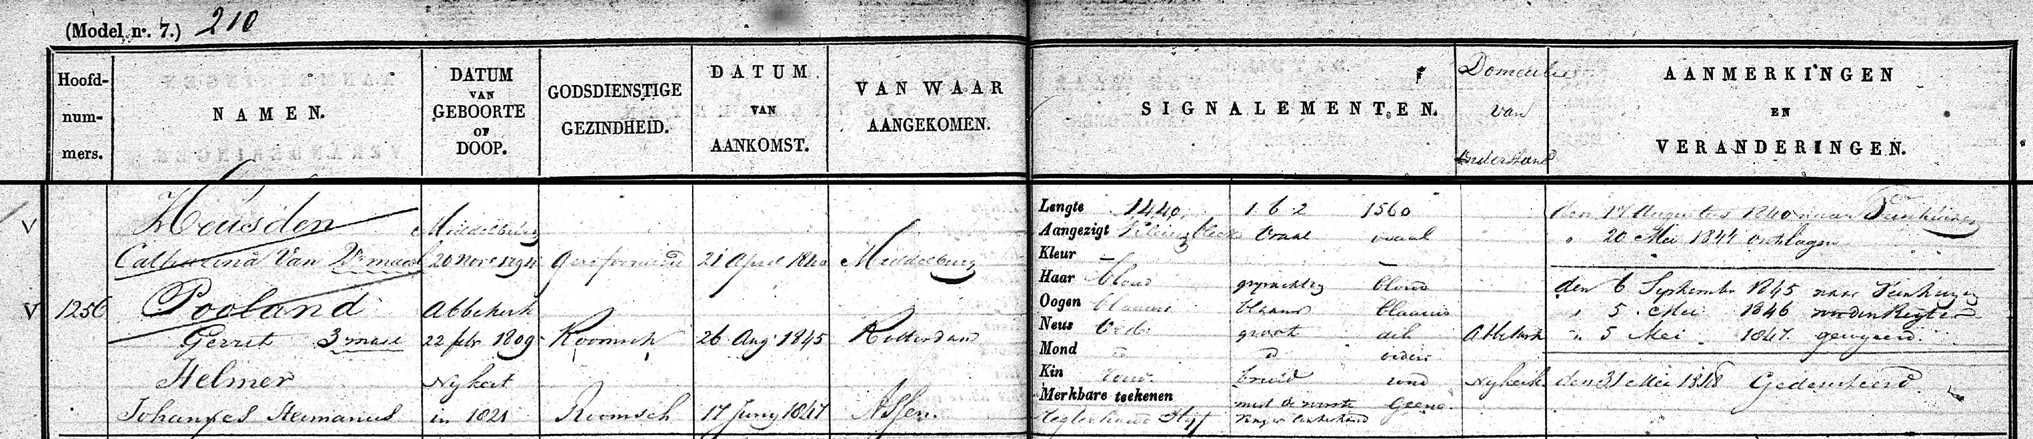 (Model, nº. 7.) 210
Hoofd-
num-
mers.
NAMEN.
DATUM
VAN
GEBOORTE
OF
DOOP.
GODSDIENSTIGE
GEZINDHEID.
DATUM
VAN
AANKOMST.
VAN WAAR
AANGEKOMEN.
SIGNALEMENTEN.
Domecilie
van
onderstand
AANMERKINGEN
EN
VERANDERINGEN.
V Heusden Middelburg
Catharina Van 2e maal 20 Nov 1794 Gereformeerd 21 April 1840 Middelburg
V 1256 Pooland Abbekerk
Gerrit 3 maal 22 febr 1809 Roomsch 26 Aug 1845 Rotterdam
Helmer Nykert
Johannes Hermanus in 1821 Roomsch 17 Juny 1847 Assen
Lengte 1440 162 1560
Aangezigt bleek ovaal ovaal
Kleur
Haar blond blond
Oogen blaauw blaauw blaauw
Neus groot
Mond
Kin rond breed rond
Merkbare teekenen Geene
Abbekerk
Nykerk
den 17 Augustus 1840 naar Veenhuizen
" 20 Mei 1844 ontslagen
den 6 September 1845 naar Veenhuizen
" 5 Mei 1846
" 5 Mei 1847
den 31 Mei 1848 Gedeserteerd